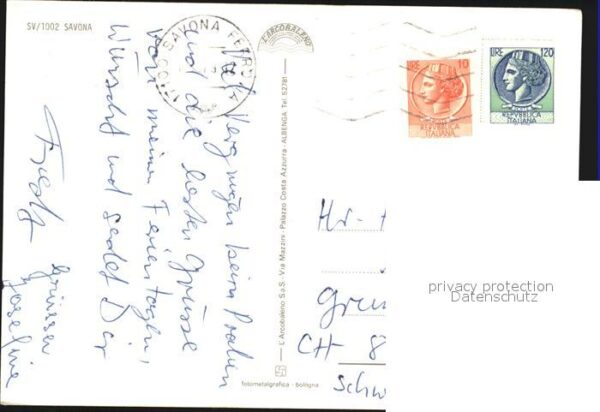 SV/1002 SAVONA
SAVONA FERROVIA
L'ARCOBALENO
LIRE 10
REPVBBLICA
ITALIANA
LIRE 120
REPVBBLICA
ITALIANA
Viel Vergnügen beim
und die besten Grüsse
von meinen Ferientagen,
wünscht und sendet Dir
Grüssen
Joseline
L'Arcobaleno S.a.S. - Via Mazzini - Palazzo Costa Azzurra - ALBENGA Tel. 52781
fotometalgrafica - bologna
Hr.
CH 8
Schw
privacy protection
Datenschutz